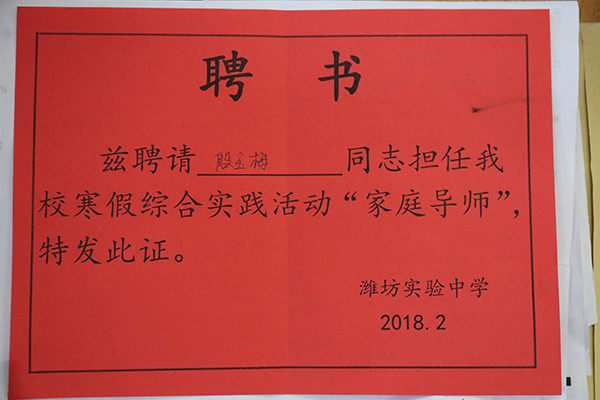 聘 书
兹聘请 殷玉梅 同志担任我
校寒假综合实践活动“家庭导师”，
特发此证。
潍坊实验中学
2018.2